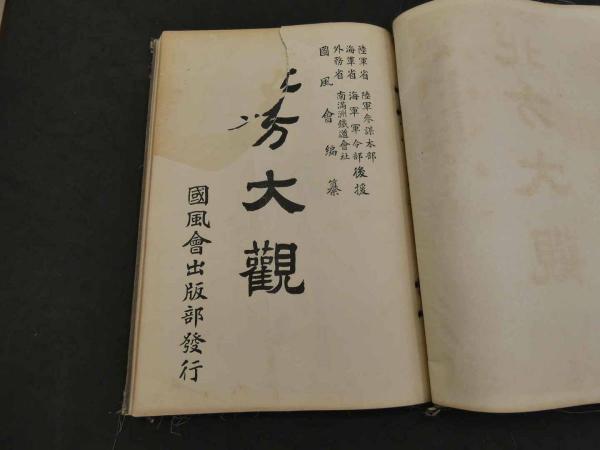 陸軍省 陸軍参謀本部
海軍省 海軍軍令部 後援
外務省 南満洲鐵道會社
國風會編纂
方大觀
國風會出版部發行
北方大觀